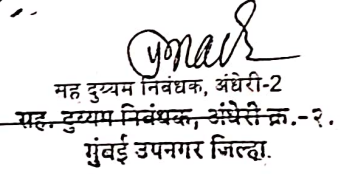 मह दुय्यम निबंधक, अंधेरी-2
सह. दुय्यम निबंधक, अंधेरी क्र.-२.
मुंबई उपनगर जिल्हा.